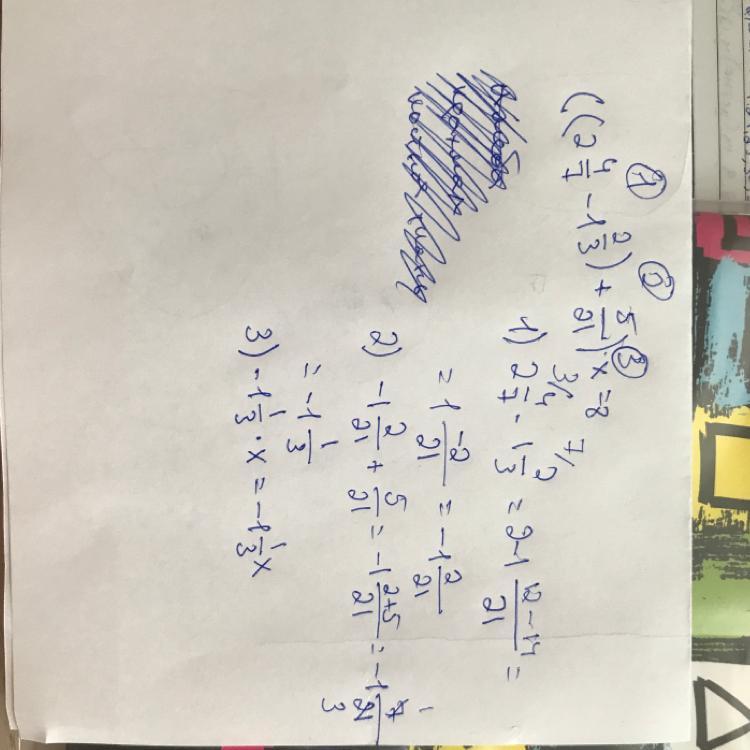 ① ② ③
((2 4/7 - 1 2/3) + 5/21) · x = 8
1) 2 4/7 - 1 2/3 = 2-1 12-14/21 =
= 1 -2/21 = -1 2/21
2) -1 2/21 + 5/21 = -1 2+5/21 = -1 7/21
= -1 1/3
3) -1 1/3 · x = -1 1/3 x